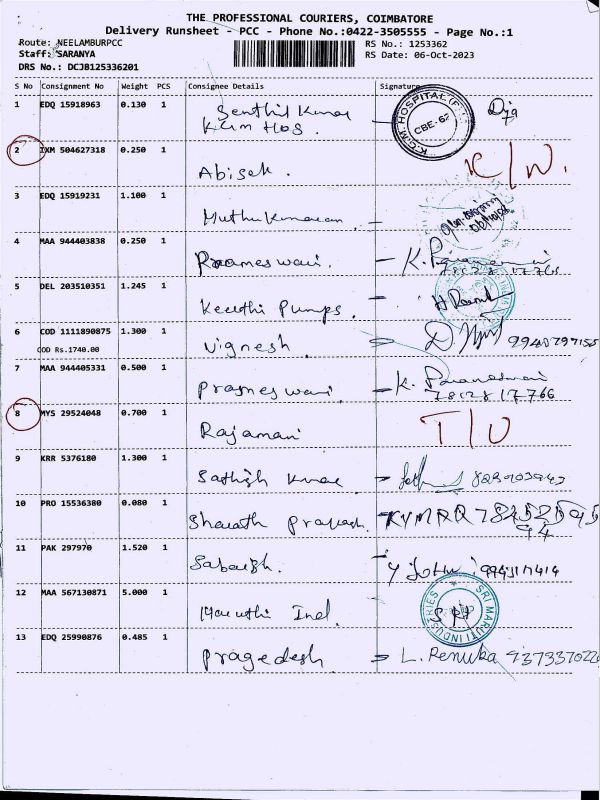 THE PROFESSIONAL COURIERS, COIMBATORE
Delivery Runsheet - PCC - Phone No.:0422-3505555 - Page No.:1
Route: NEELAMBURPCC
RS No.: 1253362
Staff: SARANYA
RS Date: 06-Oct-2023
DRS No.: DCJB125336201
S No Consignment No Weight PCS Consignee Details Signature
1 EDQ 15918963 0.130 1 Senthil Kumar
KGM Hos. K.G.M. HOSPITAL CBE-62
2 IXM 504627318 0.250 1 Abisek.
3 EDQ 15919231 1.100 1 Muthukumaran
4 MAA 944403838 0.250 1 Prameswari. - K.
78128 17766
5 DEL 203510351 1.245 1 Keerthi Pumps.
6 COD 1111890875 1.300 1 Vignesh
COD Rs.1740.00
7 MAA 944405331 0.500 1 Prameswari - K. Parameswari
78128 17766
8 MYS 29524048 0.700 1 Rajamani
9 KRR 5376180 1.300 1 Sathish Kumar
10 PRO 15536380 0.080 1 Sharath Prakash.
11 PAK 297970 1.520 1 Sabarish. Jothi
12 MAA 567130871 5.000 1 Maruthi Ind. SRI MARUTI INDUSTRIES
13 EDQ 25990876 0.485 1 Pragedesh L. Renuka